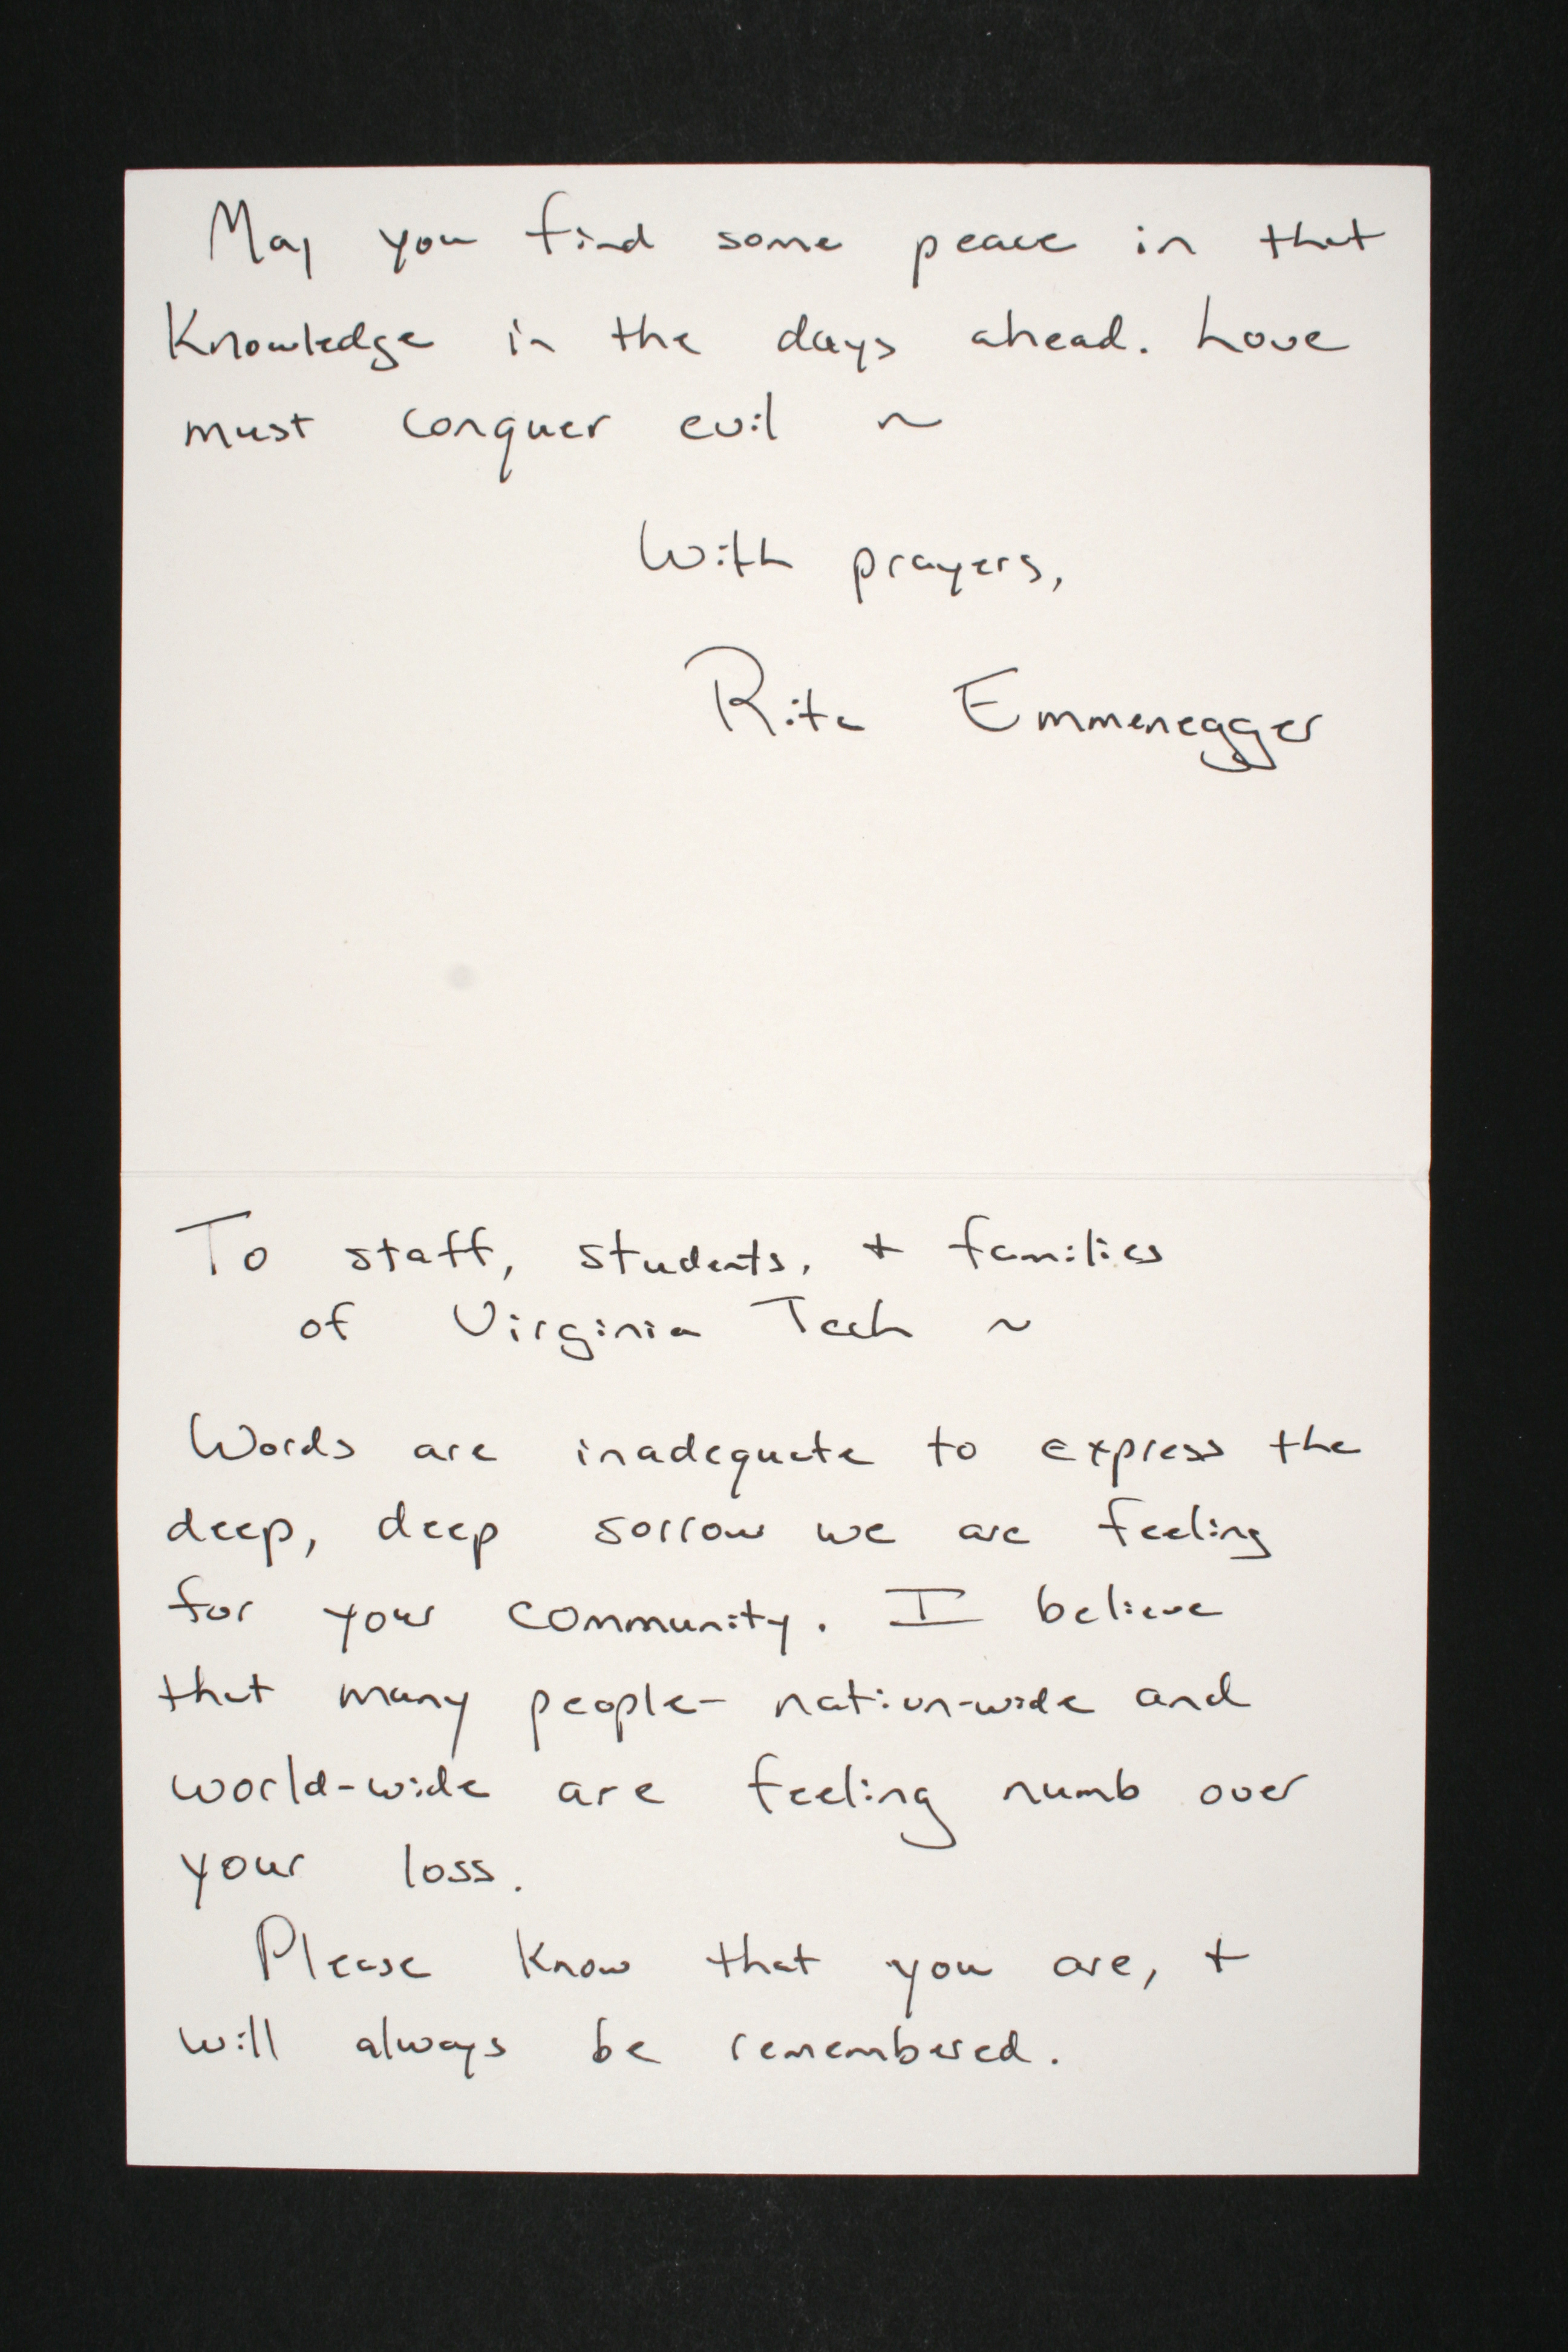 May you find some peace in that
Knowledge in the days ahead. Love
must conquer evil ~
With prayers,
Rita Emmenegger
To staff, students, + families
of Virginia Tech ~
Words are inadequate to express the
deep, deep sorrow we are feeling
for your community. I believe
that many people- nation-wide and
world-wide are feeling numb over
your loss.
Please Know that you are, +
will always be remembered.